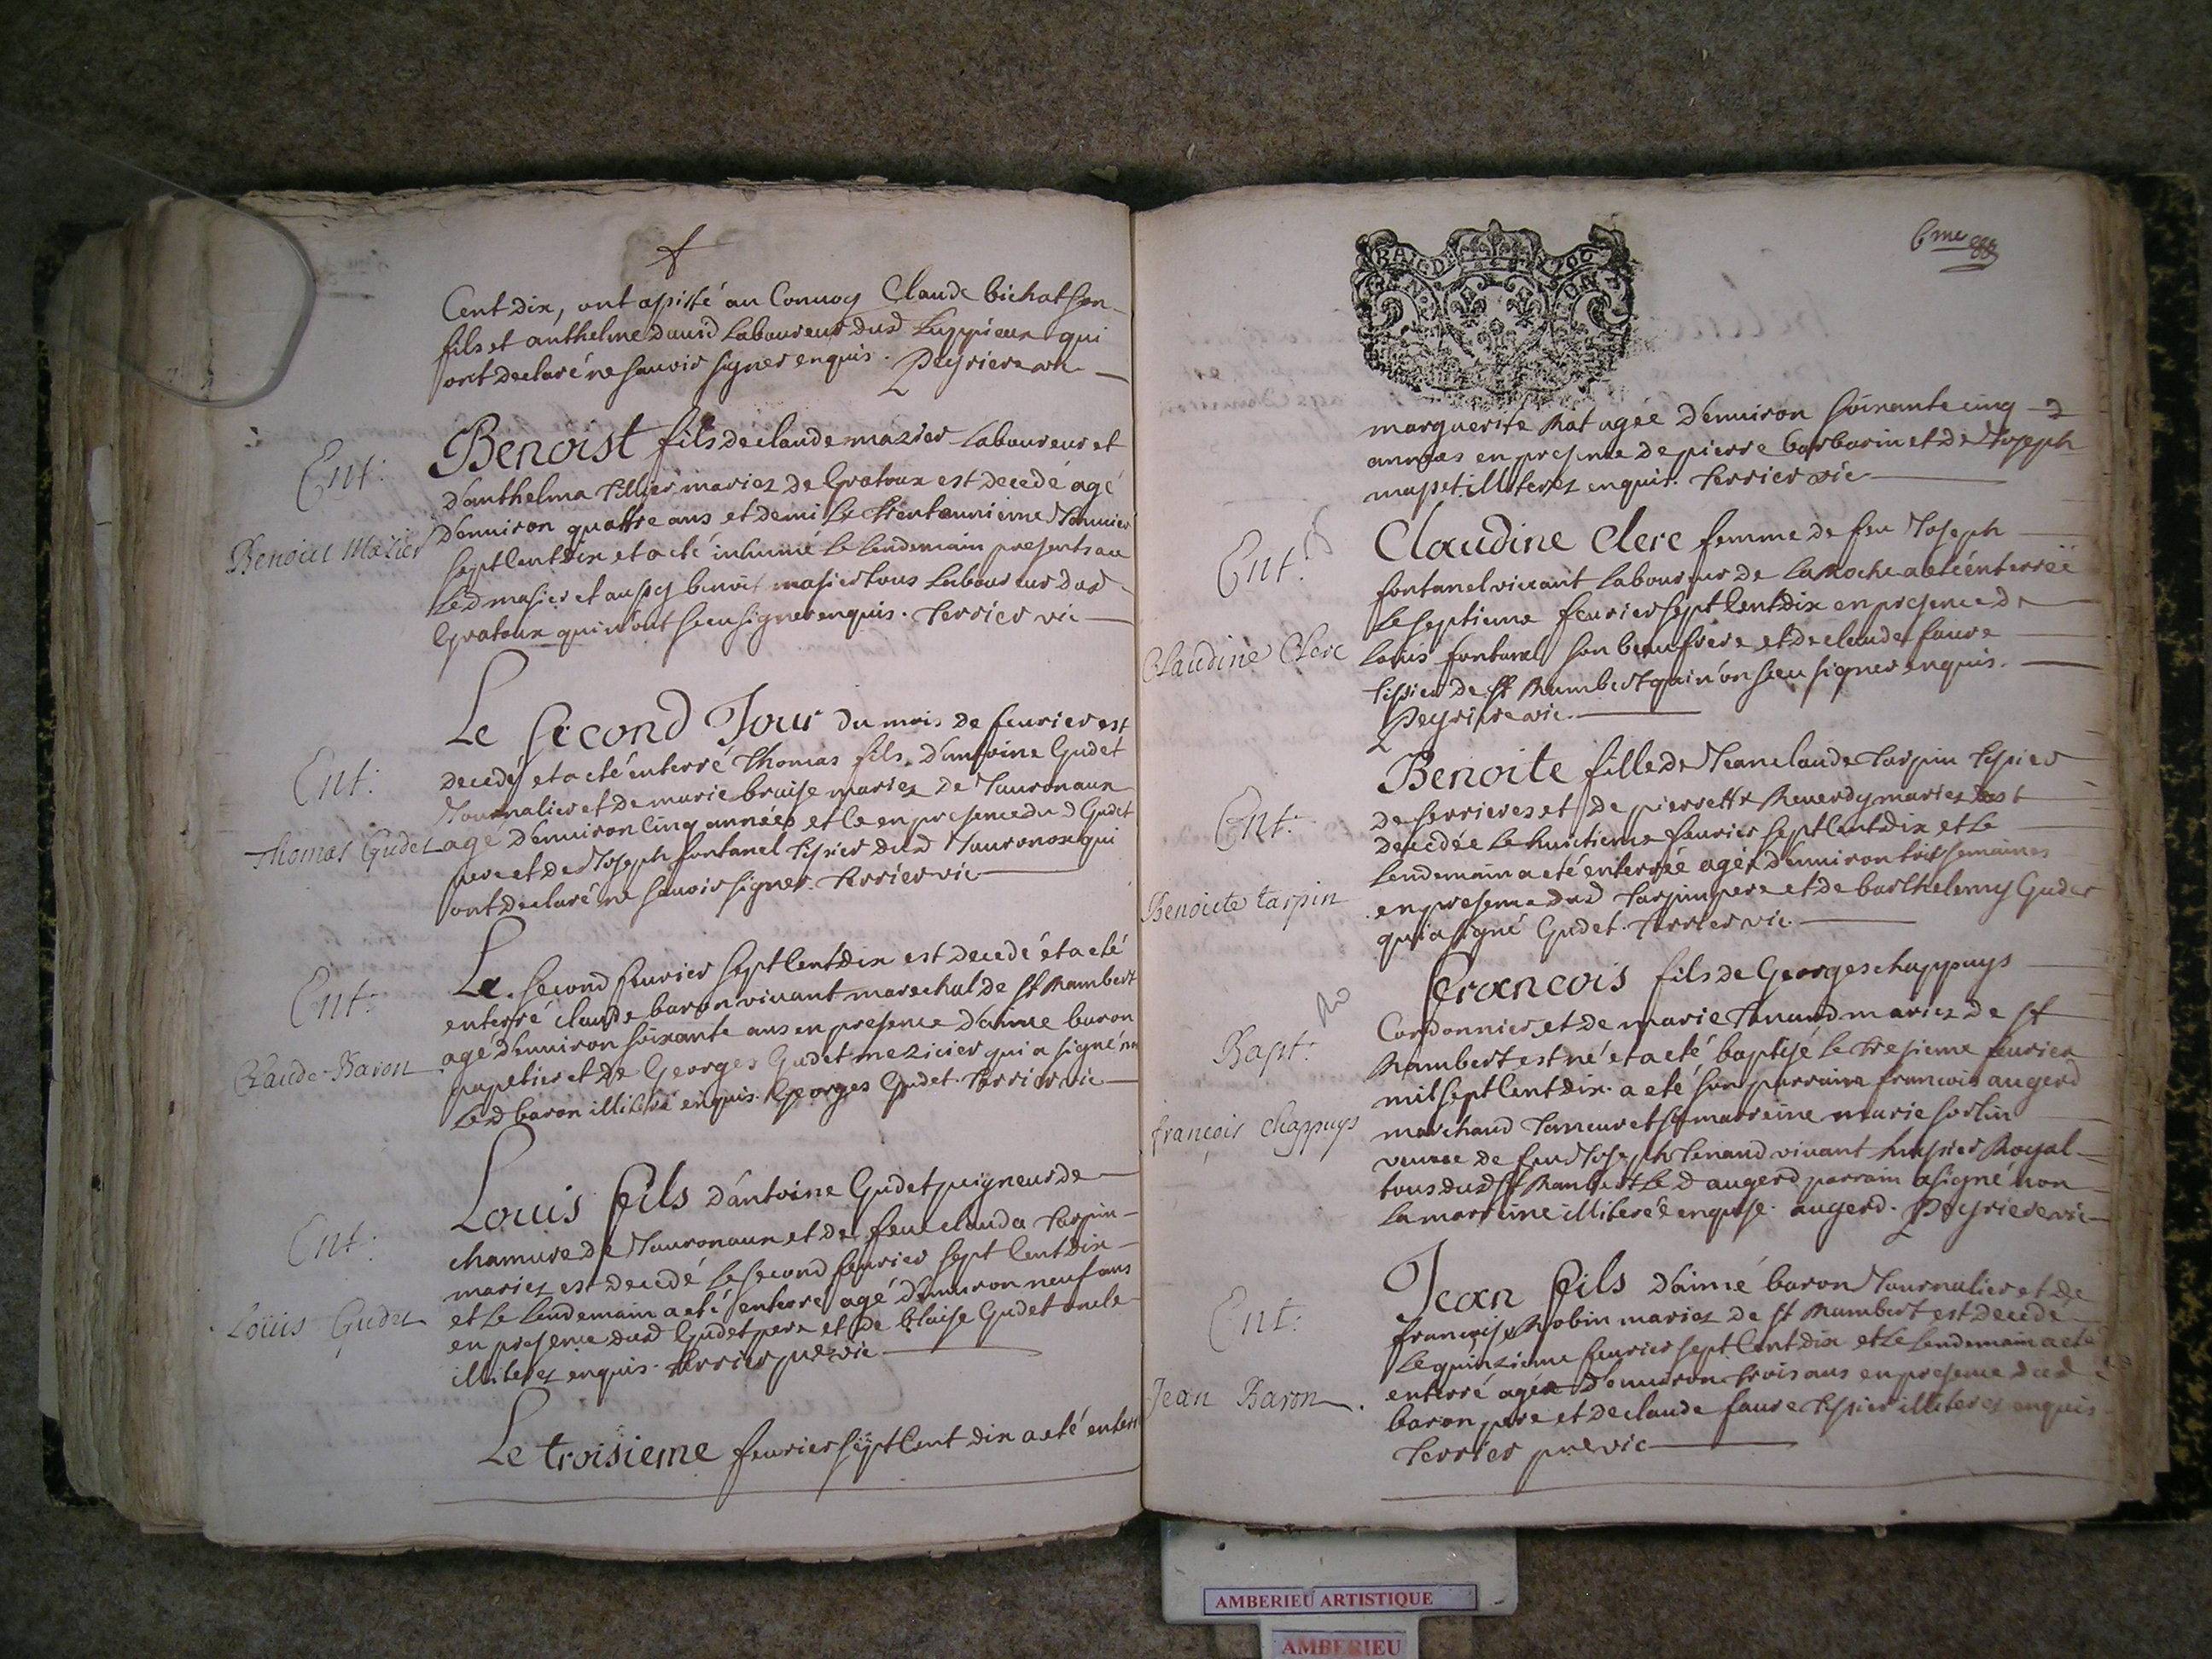 Cent dix, ont assisté au Convoy Claude bichat son
fils et anthelme david Laboureur dud Luppieux qui
ont declaré ne sauoir signer enquis. Peyriere vic
Ent:
Benoict Mazier
Benoist fils de claude mazier Laboureur et
d'anthelma tillier mariez de Gratoux est decedé agé
d'enuiron quattre ans et demi le trentaunieme Januier
sept Cent dix et a eté inhumé le lendemain presents au
Led masier et aussy benoit masier tous Laboureur dud
Gratoux qui n'ont sceu signer enquis. Terrier vic
Ent:
Thomas Gudet
Le second Jour du mois de feurier est
decedé et a eté enterré Thomas fils d'antoine Gudet
Journalier et de marie braise mariez de Jauronaux
agé d'enuiron Cinq années et le en presence dud Gudet
pere et de Joseph fontanel tissier dud Jauronox qui
ont declaré ne sauoir signer. Terrier vic
Ent:
Claude Baron
Le second feurier sept Cent dix est decedé et a eté
enterré claude baron viuant marechal de st Rambert
agé d'enuiron soixante ans en presence d'aime baron
papetier et de Georges Gudet mezicier qui a signé non
Led baron illiteré enquis. Georges Gudet. Terrier vic
Ent:
Loüis Gudet
Louis fils d'antoine Gudet peigneur de
chanure de Jauronaux et de feu clauda tarpin
mariez est decedé le second feurier sept Cent dix
et le lendemain a eté enterré agé d'enuiron neuf ans
en presence dud Gudet pere et de blaise Gudet oncle
illiterez enquis. Terrier pre vic
Le troisieme feurier sept Cent dix a eté enterr
6me
marguerite Rat agée d'enuiron soixante cinq
années en presence de pierre barbarin et de Joseph
mapet illiterez enquis. Terrier vic
Ent:
Claudine Clerc
Claudine Clerc femme de feu Joseph
fontanel viuant Laboureur de La Roche a eté enterrée
Le septieme feurier sept Cent dix en presence de
Louis fontanel son beaufrere et de claude faure
tissier de st Rambert qui n'on sceu signer enquis.
Peyriere vic.
Ent:
Benoicte tarpin
Benoite fille de Jean claude tarpin tissier
de serrieres et de pierrette Reuerdy mariez est
decedée le huictieme feurier sept Cent dix et le
lendemain a eté enterrée agée d'enuiron trois semaines
en presence dud tarpin pere et de barthelemy Gudet
qui a signé Gudet. Terrier vic.
Bapt:
françois Chappuys
francois fils de Georges chappuys
Cordonnier et de marie tenand mariez de st
Rambert est né et a eté baptisé le tresieme feurier
mil sept Cent dix. a eté son parrain francois augerd
marchand tanneur et sa marreine marie sorlin
veuue de feu Joseph tenand viuant huissier Royal
tous dud st Rambert Led augerd parrain a signé non
La marreine illiterée enquise. augerd. Peyriere vic
Ent:
Jean Baron
Jean fils d'aimé baron Journalier et de
francoise Robin mariez de st Rambert est decedé
Le quinzieme feurier sept Cent dix et le lendemain a eté
enterré agé d'enuiron trois ans en presence dud
baron pere et de claude faure tissier illiterez enquis
Terrier pre vic
AMBERIEU ARTISTIQUE
AMBERIEU